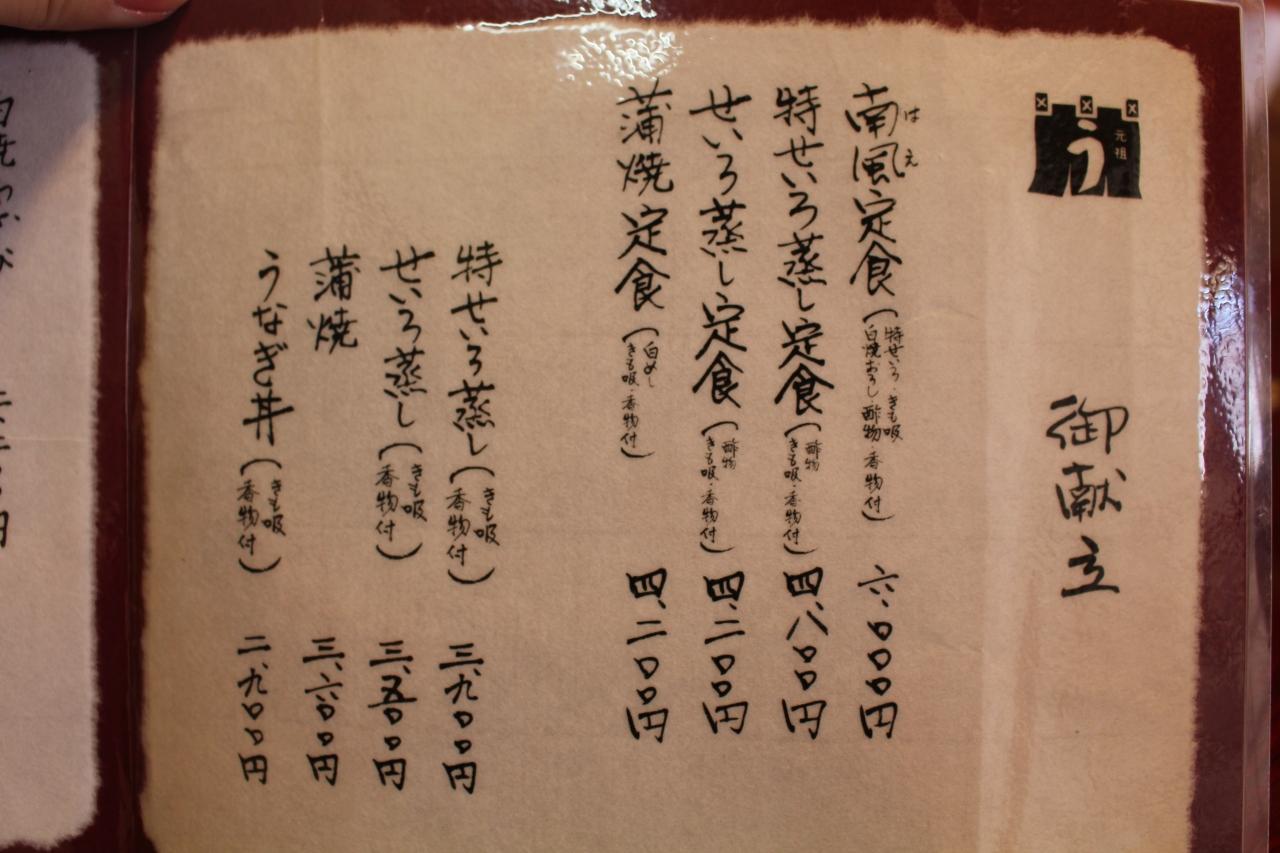 元祖
う
御献立
南風定食(特せいろ・きも吸 白焼おろし・酢物 香物付) 六、〇〇〇円
はえ
特せいろ蒸し定食(酢物 きも吸・香物付) 四、八〇〇円
せいろ蒸し定食(酢物 きも吸・香物付) 四、二〇〇円
蒲焼定食(白めし きも吸・香物付) 四、二〇〇円
特せいろ蒸し(きも吸 香物付) 三、九〇〇円
せいろ蒸し(きも吸 香物付) 三、五〇〇円
蒲焼 三、六〇〇円
うなぎ丼(きも吸 香物付) 二、九〇〇円